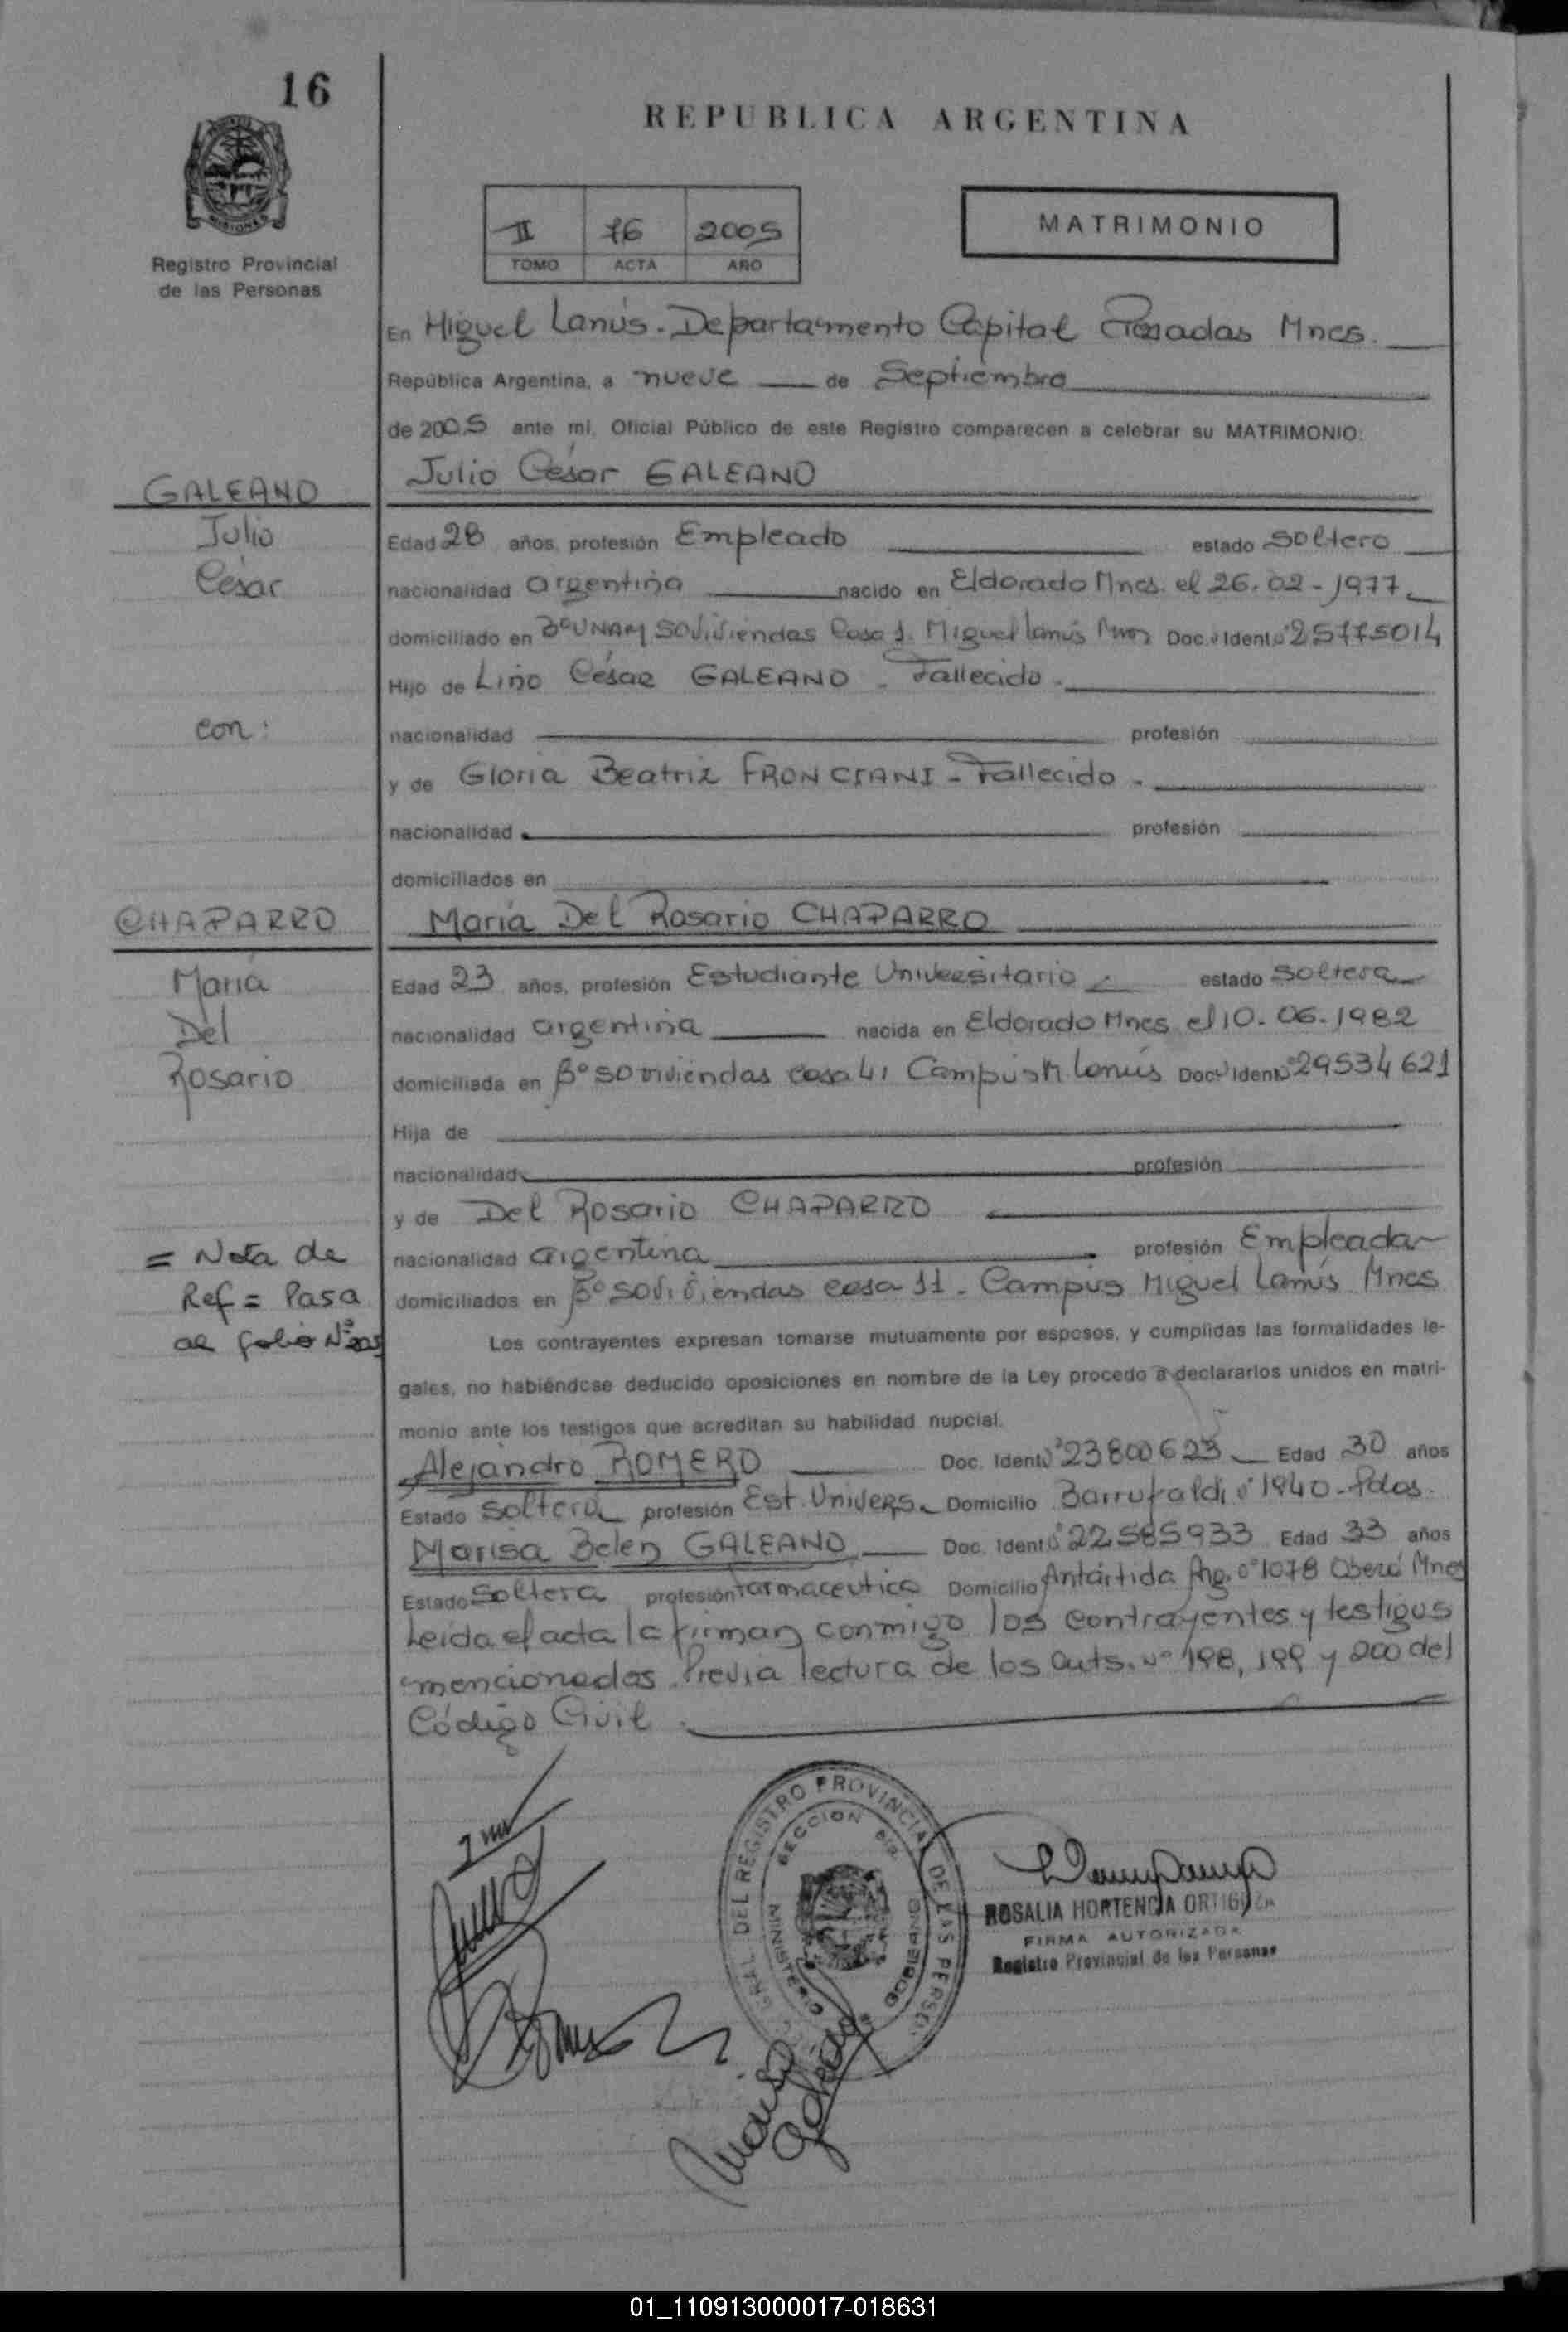 16
REPUBLICA ARGENTINA
MISIONES
Registro Provincial
de las Personas
II 76 2005
TOMO ACTA AÑO
MATRIMONIO
En Miguel Lanús - Departamento Capital Posadas Mnes.
República Argentina, a nueve de Septiembre
de 2005 ante mi, Oficial Público de este Registro comparecen a celebrar su MATRIMONIO:
GALEANO
Julio César GALEANO
Julio
César
Edad 28 años, profesión Empleado estado soltero
nacionalidad argentina nacido en Eldorado Mnes. el 26-02-1977
domiciliado en Bº UNAM 50 viviendas Casa 1. Miguel Lanús Mnes Doc. Ident. 25775014
Hijo de Lino César GALEANO - Fallecido.
con:
nacionalidad profesión
y de Gloria Beatriz FRONCIANI - Fallecido.
nacionalidad profesión
domiciliados en
CHAPARRO
María Del Rosario CHAPARRO
María
Del
Rosario
Edad 23 años, profesión Estudiante Universitario estado soltera
nacionalidad argentina nacida en Eldorado Mnes el 10-06-1982
domiciliada en Bº 50 viviendas casa Campus M Lanús Doc. Ident. 29534621
Hija de
nacionalidad profesión
y de Del Rosario CHAPARRO
= Nota de
Ref = Pasa
al folio Nº
nacionalidad argentina profesión Empleada
domiciliados en Bº 50 viviendas casa 11 - Campus Miguel Lanús Mnes
Los contrayentes expresan tomarse mutuamente por esposos, y cumplidas las formalidades le-
gales, no habiéndose deducido oposiciones en nombre de la Ley procedo a declararlos unidos en matri-
monio ante los testigos que acreditan su habilidad nupcial.
Alejandro ROMERO Doc. Ident. 23800623 Edad 30 años
Estado profesión Est. Univers. Domicilio Barrufaldi nº 1940 - Pdas.
Marisa Belen GALEANO Doc. Ident. 22585933 Edad 33 años
Estado Soltera profesión farmaceutica Domicilio Antártida Arg. nº 1078 Oberá Mnes
Leida el acta la firman conmigo los contrayentes y testigos
mencionados. Previa lectura de los arts. nº 198, 199 y 200 del
Código Civil.
GRAL. DEL REGISTRO PROVINCIAL DE LAS PERSO.
MINISTERIO GOBIERNO
SECCION
Marisa Galeano
ROSALIA HORTENCIA ORTIGOZA
FIRMA AUTORIZADA
Registro Provincial de las Personas
01_110913000017-018631